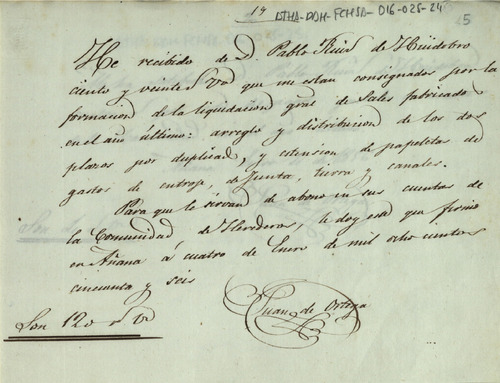 19 ATHA-DAH-FCHSA-016-025-24
5
He recibido de D. Pablo Ruiz de Huidobro
ciento y veinte rs vn que me estan consignados por la
formacion de la liquidacion gral de Sales fabricada
en el año último: arreglo y distribucion de los dos
plazos por duplicad, y estension de papeletas de
gastos de entroje, de Junta, tierra y canales.
Para que le sirvan de abono en sus cuentas de
la Comunidad de Herederos, le doy este que firmo
en Añana á cuatro de Enero de mil ocho cientos
cincuenta y seis
Juan de Ortega
Son 120 rs vn